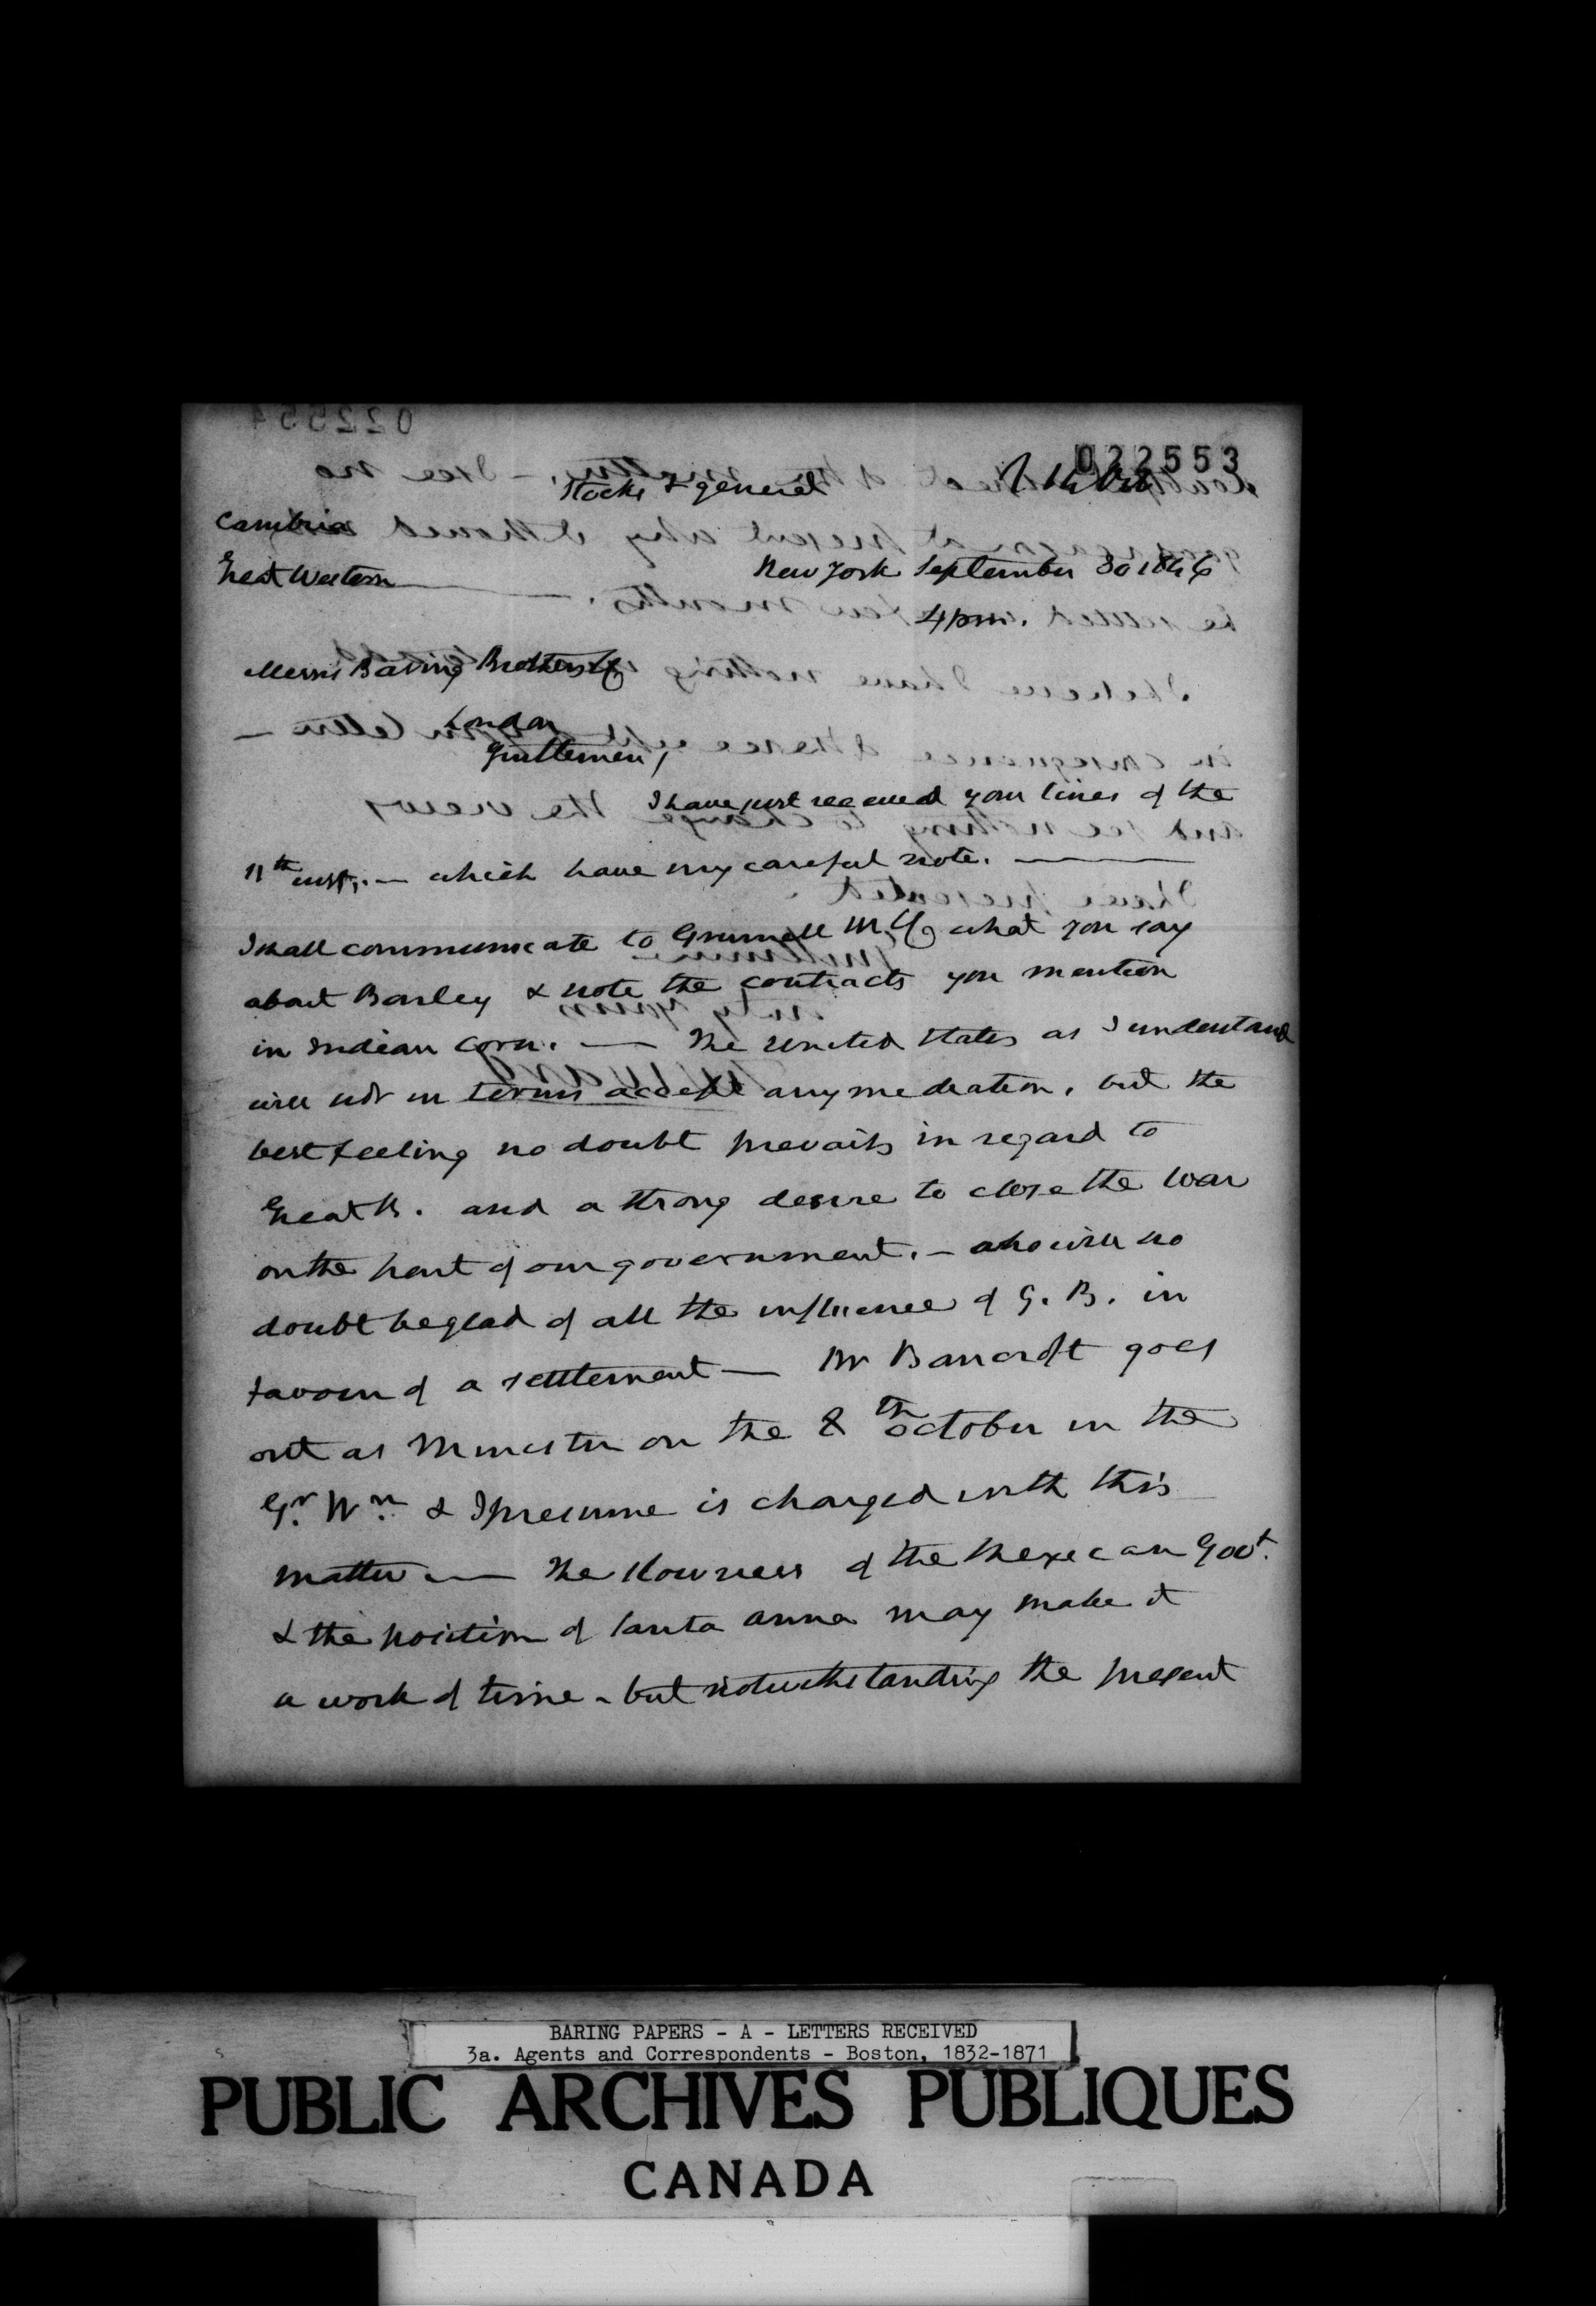 022553
Stocks & general
Cambria
Great Western
New York September 30 1846
4 pm.
Messrs Baring Brothers & Co
London
Gentlemen,
I have just received your lines of the
11th inst. — which have my careful note. —
I shall communicate to Grinnell M & Co what you say
about Barley & note the contracts you mention
in Indian corn. — The United States as I understand
will not in terms accept any mediation, but the
best feeling no doubt prevails in regard to
Great B. and a strong desire to close the war
on the part of our government. — who will no
doubt be glad of all the influence of G. B. in
favour of a settlement — Mr Bancroft goes
out as Minister on the 8th October in the
Gr. Wn. & I presume is charged with this
matter. — The slowness of the Mexican Govt.
& the position of Santa Anna may make it
a work of time - but notwithstanding the present
BARING PAPERS - A - LETTERS RECEIVED
3a. Agents and Correspondents - Boston, 1832-1871
PUBLIC ARCHIVES PUBLIQUES
CANADA